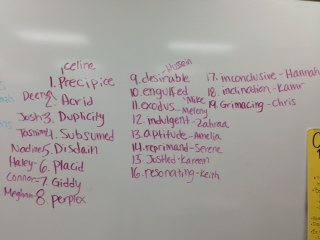 celine
1. Precipice
2. Acrid
Josh-3. Duplicity
4. Subsumed
Nadine 5. Disdain
Haley-6. Placid
Connor-7. Giddy
Meghan-8. perplex
Husein
9. desirable
10. engulfed
11. exodus - Mike
Meleny
12. indulgent - Zahraa
13. aptitude - Amelia
14. reprimand - Serene
15. Jostled - Kareem
16. resonating - Keith
17. inconclusive - Hannah
18. inclination - Kamr
19. Grimacing - Chris